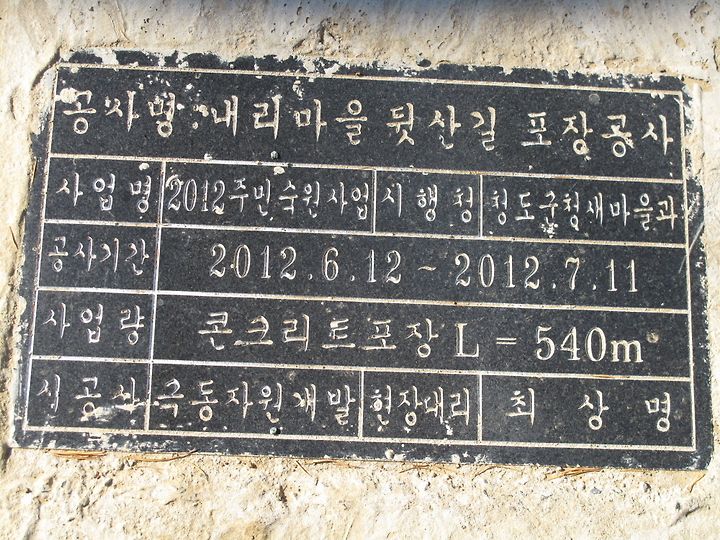 공사명 내리마을 뒷산길 포장공사
사업명 2012주민숙원사업 시행청 청도군청새마을과
공사기간 2012.6.12 ~ 2012.7.11
사업량 콘크리트포장 L = 540m
시공사 극동자원개발 현장대리 최상명